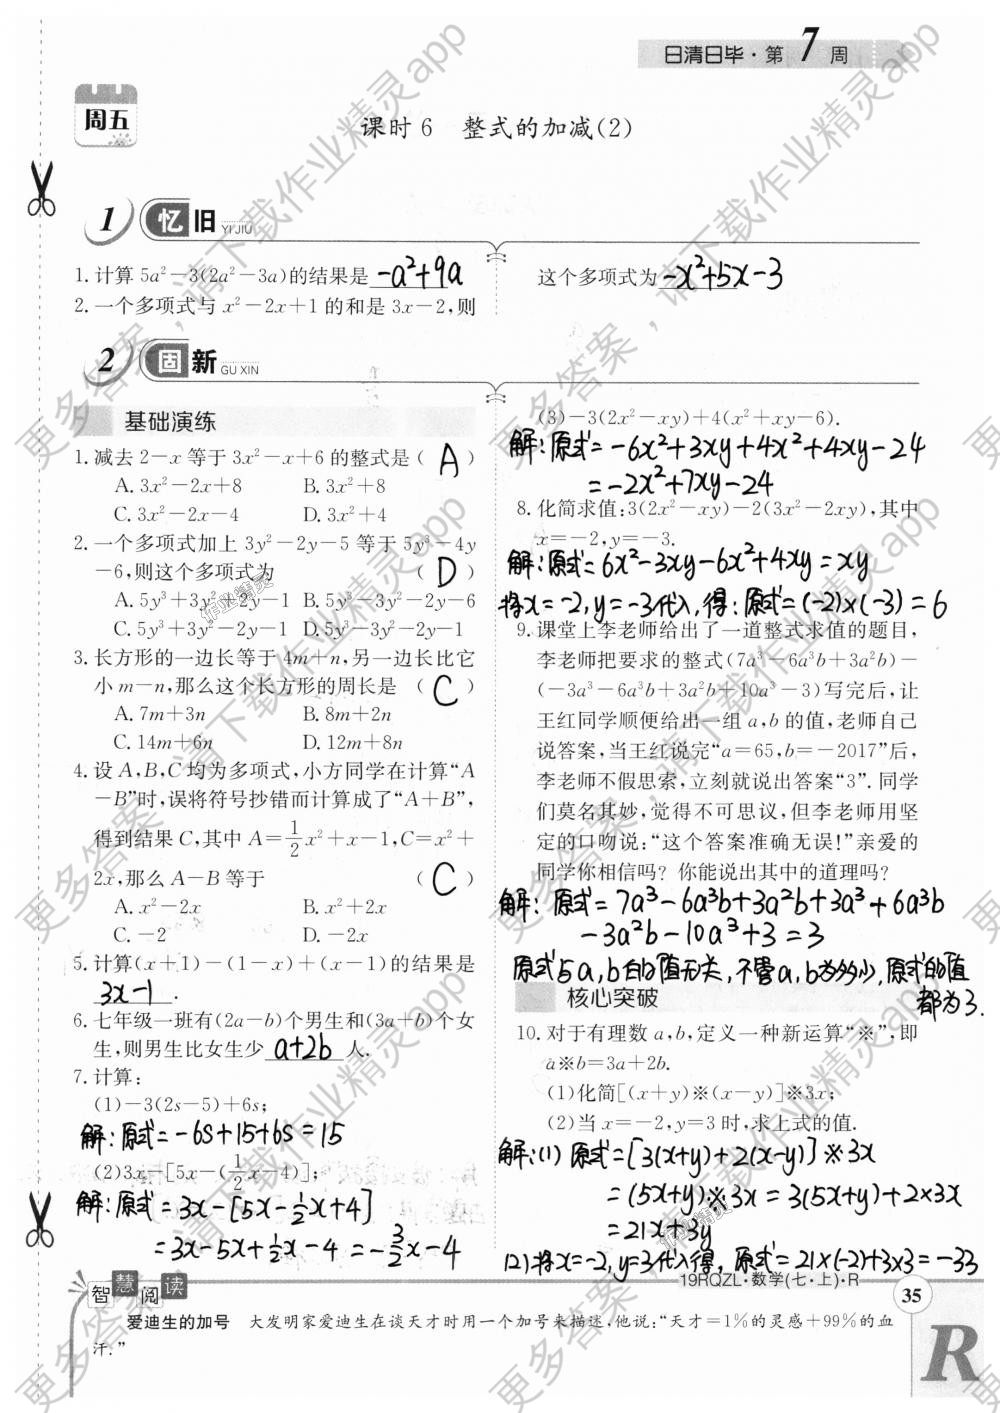 日清日毕·第7周
周五
课时6 整式的加减(2)
1 忆旧 YI JIU
1.计算 5a²-3(2a²-3a)的结果是 -a²+9a
2.一个多项式与 x²-2x+1 的和是 3x-2,则
这个多项式为 -x²+5x-3
2 固新 GU XIN
基础演练
1.减去 2-x 等于 3x²-x+6 的整式是 ( A )
A. 3x²-2x+8 B. 3x²+8
C. 3x²-2x-4 D. 3x²+4
2.一个多项式加上 3y²-2y-5 等于 5y³-4y
-6,则这个多项式为 ( D )
A. 5y³+3y²+2y-1 B. 5y³-3y²-2y-6
C. 5y³+3y²-2y-1 D. 5y³-3y²-2y-1
3.长方形的一边长等于 4m+n,另一边长比它
小 m-n,那么这个长方形的周长是 ( C )
A. 7m+3n B. 8m+2n
C. 14m+6n D. 12m+8n
4.设 A,B,C 均为多项式,小方同学在计算“A
-B”时,误将符号抄错而计算成了“A+B”,
得到结果 C,其中 A=1/2x²+x-1,C=x²+
2x,那么 A-B 等于 ( C )
A. x²-2x B. x²+2x
C. -2 D. -2x
5.计算(x+1)-(1-x)+(x-1)的结果是
3x-1.
6.七年级一班有(2a-b)个男生和(3a+b)个女
生,则男生比女生少 a+2b 人.
7.计算:
(1)-3(2s-5)+6s;
解:原式=-6s+15+6s=15
(2)3x-[5x-(1/2x-4)];
解:原式=3x-[5x-1/2x+4]
=3x-5x+1/2x-4=-3/2x-4
(3)-3(2x²-xy)+4(x²+xy-6).
解:原式=-6x²+3xy+4x²+4xy-24
=-2x²+7xy-24
8.化简求值:3(2x²-xy)-2(3x²-2xy),其中
x=-2,y=-3.
解:原式=6x²-3xy-6x²+4xy=xy
将x=-2,y=-3代入,得:原式=(-2)×(-3)=6
9.课堂上李老师给出了一道整式求值的题目,
李老师把要求的整式(7a³-6a³b+3a²b)-
(-3a³-6a³b+3a²b+10a³-3)写完后,让
王红同学顺便给出一组 a,b 的值,老师自己
说答案,当王红说完“a=65,b=-2017”后,
李老师不假思索,立刻就说出答案“3”.同学
们莫名其妙,觉得不可思议,但李老师用坚
定的口吻说:“这个答案准确无误!”亲爱的
同学你相信吗? 你能说出其中的道理吗?
解:原式=7a³-6a³b+3a²b+3a³+6a³b
-3a²b-10a³+3=3
原式与a,b的值无关,不管a,b为多少,原式的值
都为3.
核心突破
10.对于有理数 a,b,定义一种新运算“※”,即
a※b=3a+2b.
(1)化简[(x+y)※(x-y)]※3x;
(2)当 x=-2,y=3 时,求上式的值.
解:(1)原式=[3(x+y)+2(x-y)]※3x
=(5x+y)※3x=3(5x+y)+2×3x
=21x+3y
(2)将x=-2,y=3代入得,原式=21×(-2)+3×3=-33
19RQZL·数学(七·上)·R
35
智慧阅读
爱迪生的加号 大发明家爱迪生在谈天才时用一个加号来描述,他说:“天才=1%的灵感+99%的血
汗.”
R
更多答案,请下载作业精灵app